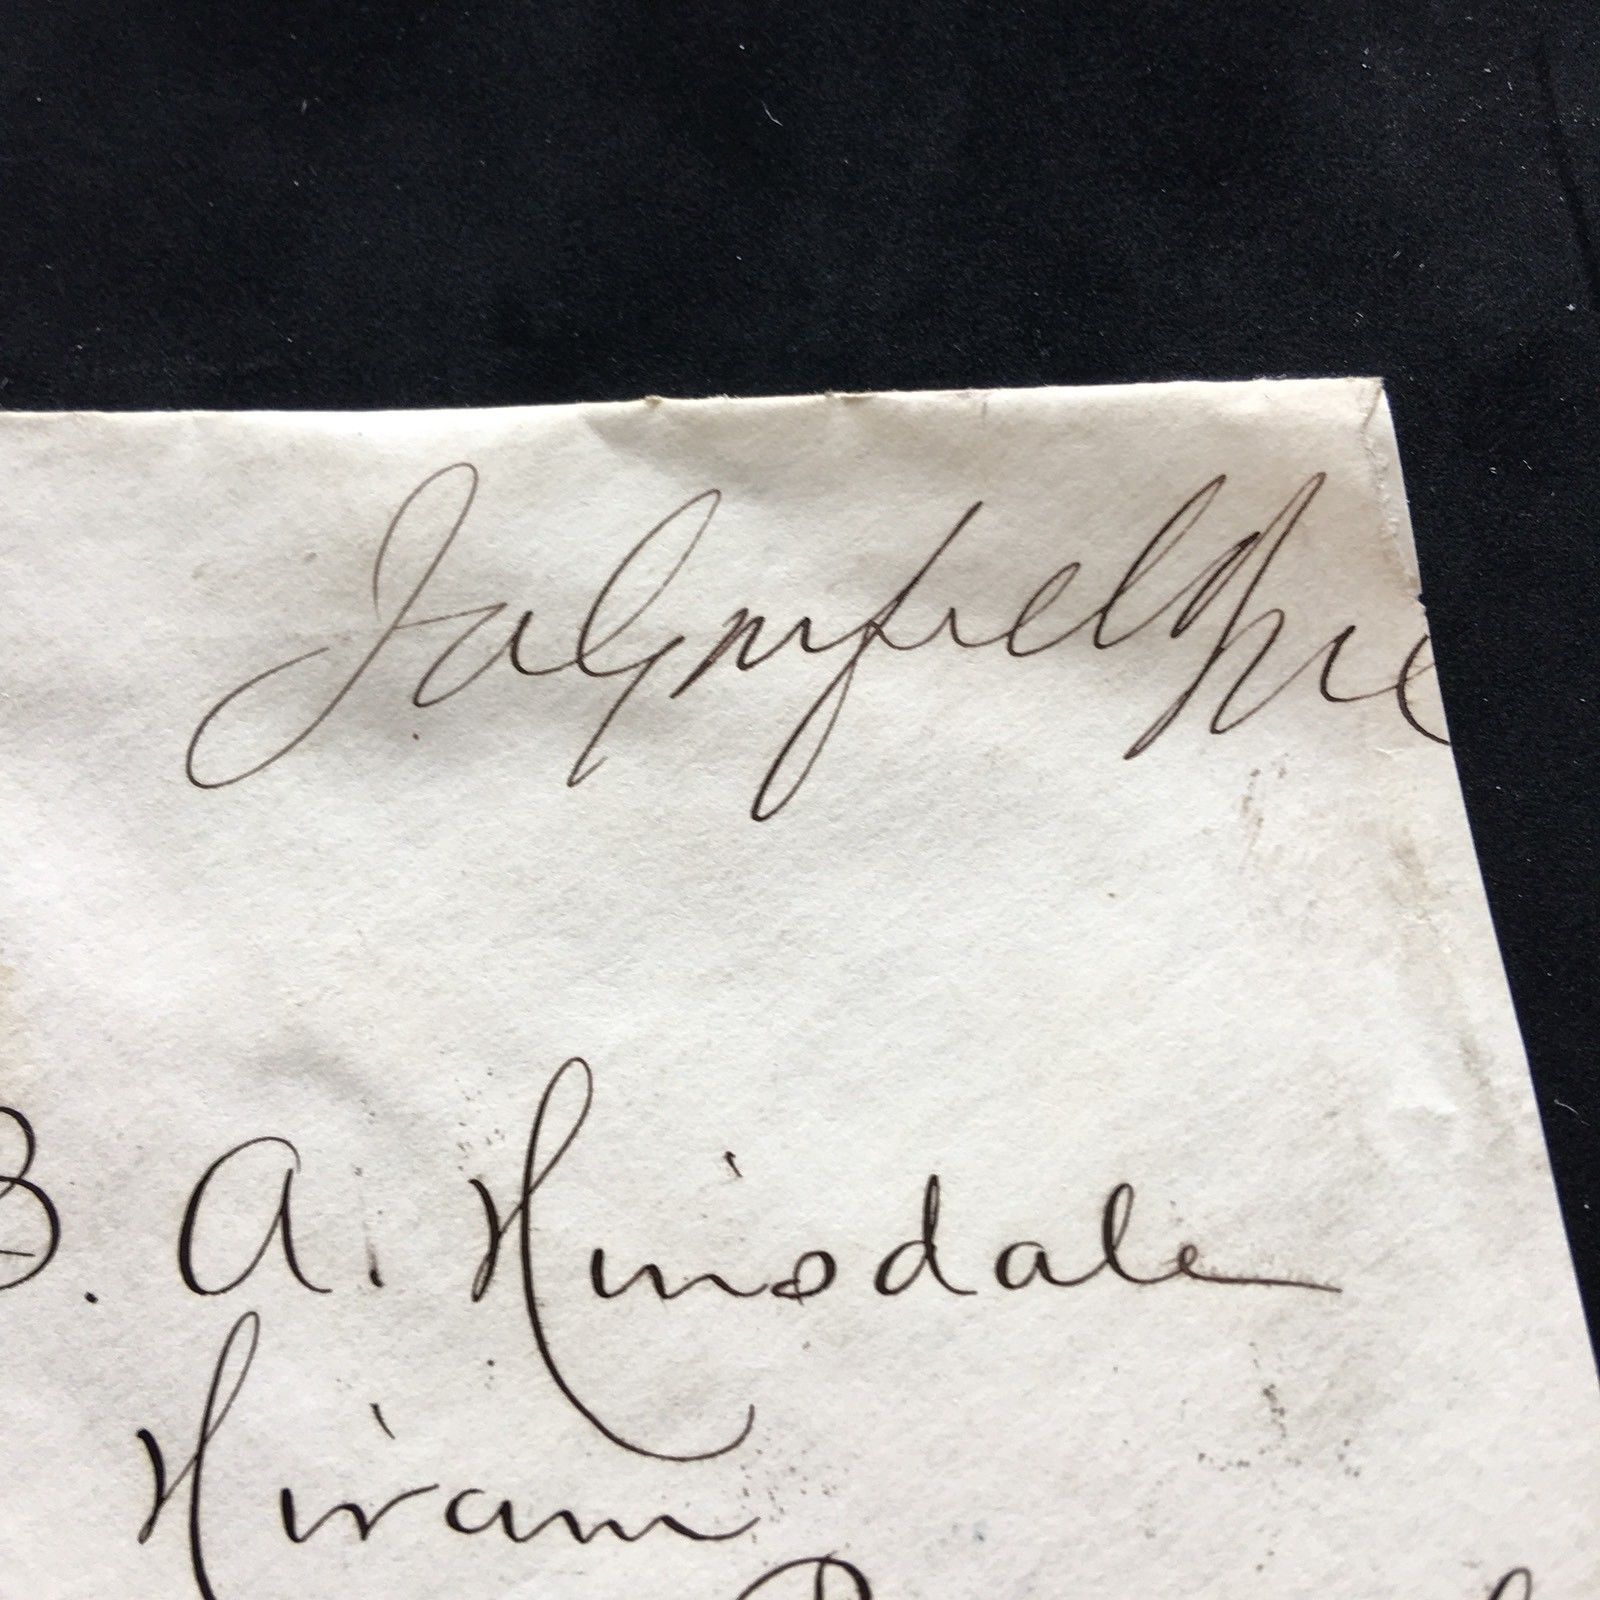 J A Garfield MC
B. A. Hinsdale
Hiram